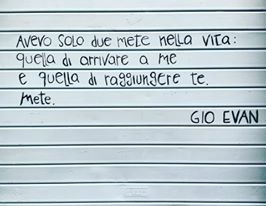 Avevo solo due mete nella vita:
quella di arrivare a me
e quella di raggiungere te.
Mete.
GIO EVAN